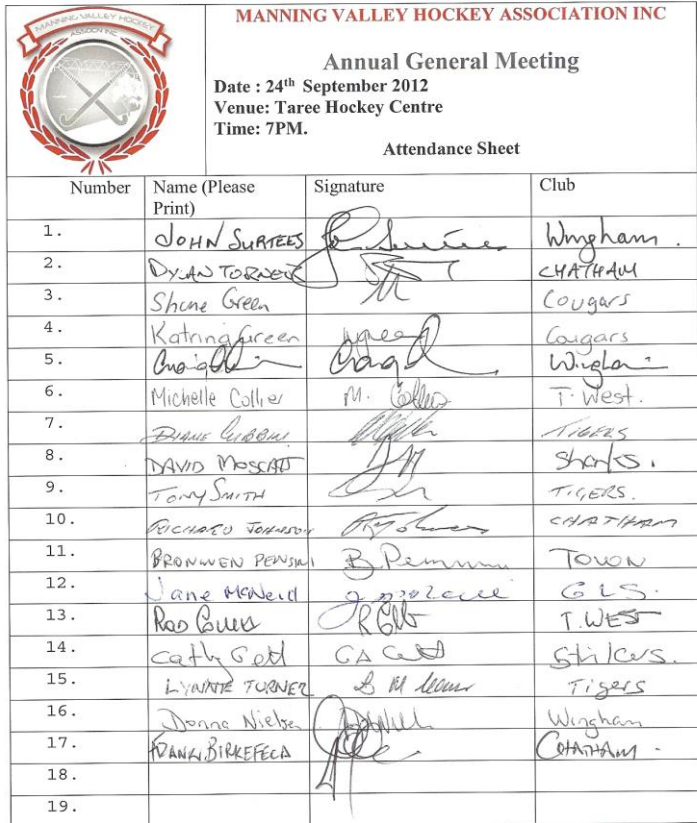 MANNING VALLEY HOCKEY
ASSOCN INC
MANNING VALLEY HOCKEY ASSOCIATION INC
Annual General Meeting
Date : 24th September 2012
Venue: Taree Hockey Centre
Time: 7PM.
Attendance Sheet
Number Name (Please Print) Signature Club
1. JOHN SURTEES Wingham.
2. DYLAN TURNER CHATHAM
3. Shane Green Cougars
4. Katrina Green Cougars
5. Craig Wingham
6. Michelle Collier M. Collier T. West.
7. DIANE GIBBONS TIGERS
8. DAVID MOSCATT Sharks.
9. TONY SMITH TIGERS.
10. RICHARD JOHNSON CHATHAM
11. BRONWEN B. TOWN
12. Jane McNeid G L S.
13. ROD T. WEST
14. Cathy Strikers.
15. LYNNE TURNER Tigers
16. Donna Nielsen Wingham
17. FRANK BIRKEFELD CHATHAM.
18.
19.